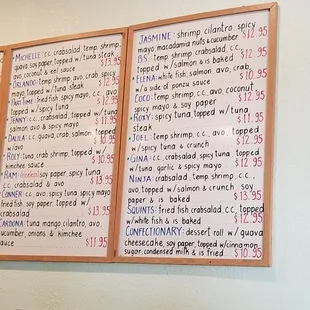 MICHELLE: c.c. crabsalad, temp. shrimp,
guava, soy paper, topped w/ tuna
avo, coconut & eel sauce $13.95
ORLANDO: temp shrimp, avo, crab, spicy
mayo, topped w/tuna steak $12.95
fried fish, spicy mayo, c.c., avo
$12.95
crabsalad, c.c., topped w/
salmon avo & spicy mayo $11.95
DALILA: c.c., guava, crab, salmon, topped
w/ tuna $10.95
ROXY: tuna, crab, shrimp, topped w/
kimchee sauce $10.95
soy paper, spicy tuna,
crabsalad & avo $13.95
CONNER: c.c., avo, spicy tuna, spicy mayo
fried fish, soy paper, topped w/
crabsalad $13.95
CARDONA: tuna, mango, cilantro, avo,
cucumber, onions & kimchee
sauce $11.95
JASMINE: shrimp, cilantro, spicy
mayo, macadamia nuts & cucumber $12.95
B.S.: temp. shrimp, crabsalad, c.c.,
topped w/salmon & is baked $12.95
ELENA: white fish, salmon, avo, crab,
w/ a side of ponzu sauce $10.95
COCO: temp shrimp, c.c., avo, coconut
spicy mayo & soy paper $12.95
ROXY: spicy tuna, topped w/tuna
steak $11.95
JOEL: temp shrimp, c.c., avo, topped
w/ spicy tuna & crunch $12.95
GINA: c.c., crabsalad, spicy tuna, topped
w/tuna, garlic & spicy mayo $12.95
NINJA: crabsalad, temp shrimp, c.c.,
avo, topped w/salmon & crunch, soy
paper & is baked $13.95
SQUINTS: fried fish, crabsalad, c.c, topped
w/white fish & is baked $12.95
CONFECTIONARY: dessert roll w/ guava
cheesecake, soy paper, topped w/cinnamon
sugar, condensed milk & is fried $10.95